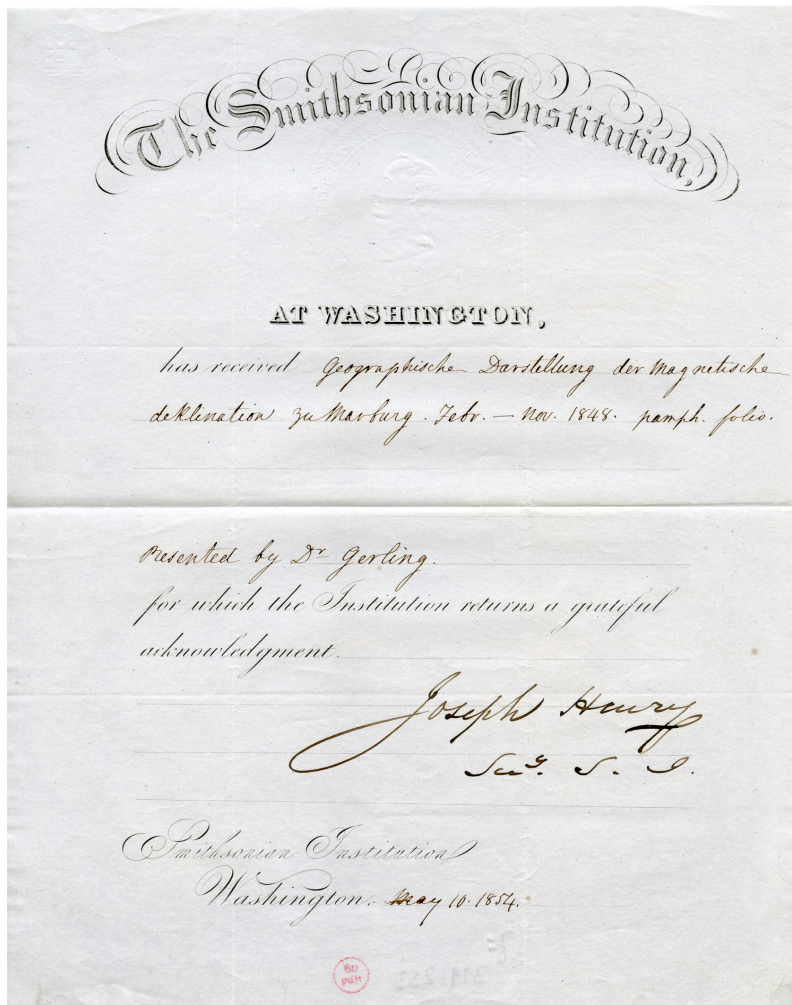 The Smithsonian Institution,
AT WASHINGTON,
has received Geographische Darstellung der Magnetische
deklination zu Marburg. Febr. — Nov. 1848. pamph. folio.
Presented by Dr Gerling.
for which the Institution returns a grateful
acknowledgment.
Joseph Henry
Secy. S. I.
Smithsonian Institution
Washington, May 10. 1854.